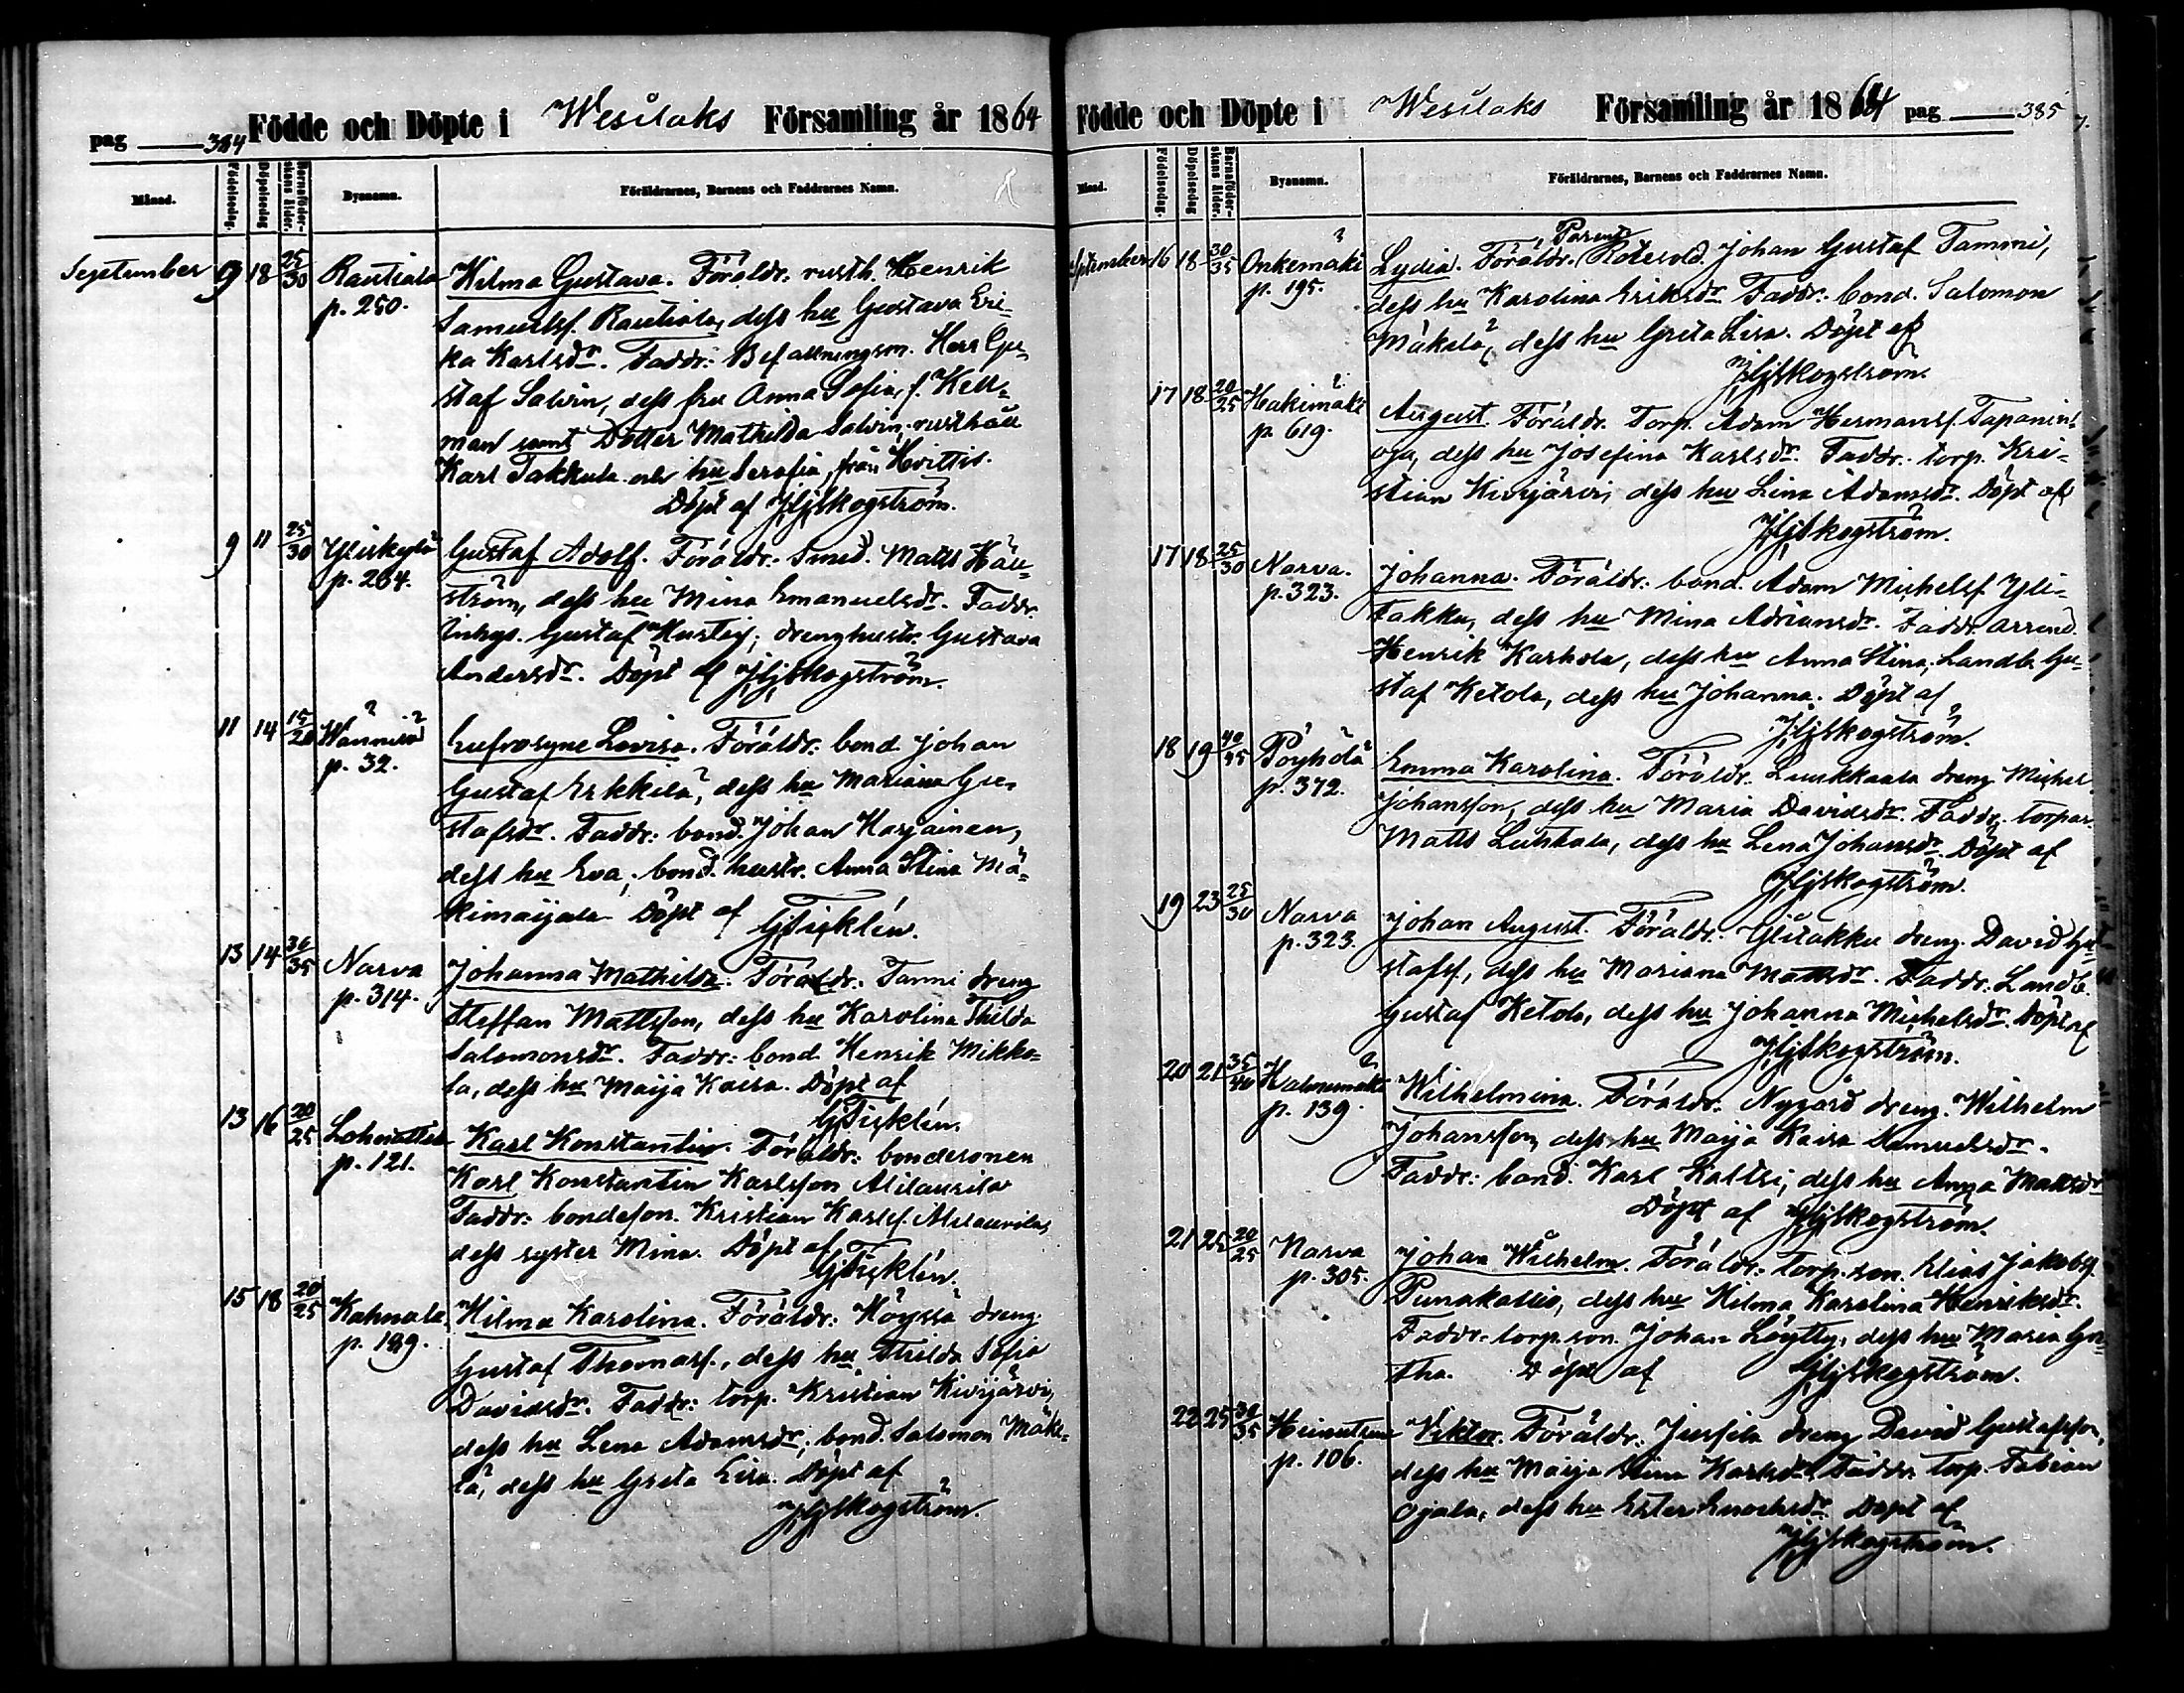 pag 384 Födde och Döpte i Wesilaks Församling år 1864
Månad. Födelsedag. Döpelsedag Barnaföderskans ålder. Bysnamn. Föräldrarnes, Barnens och Faddrarnes Namn.
September 9 18 25/30 Rautiala Hilma Gustava. Föräldr. rusth. Henrik
p. 250. Samuelsf. Rautiala, dess hu Gustava Eri-
ka Karlsdr. Faddr: Befallningsm. Herr Gu-
staf Salvin, dess fru Anna Sofia, f. Hell-
man samt Dotter Mathilda Salvin, rusthåll
Karl Takkula och hu Serafia, från Hvittis.
Döpt af Skogström.
9 11 25/30 Yliskylä Gustaf Adolf. Föräldr. Smed. Matts Häll-
p. 264. ström, dess hu Mina Emanuelsdr. Faddr.
Inhys. Gustaf; drenghustr. Gustava
Andersdr. Döpt af Skogström.
11 14 15/20 Wännilä Eufrosyne Lovisa. Föräldr: bond Johan
p. 32. Gustaf Erkkilä, dess hu Mariana Gu-
stafsdr. Faddr: bond. Johan Harjainen,
dess hu Eva; bond. hustr. Anna Stina Mä-
kimaijala Döpt af Ticklén.
13 14 30/35 Narva Johanna Mathilda. Föräldr: Tanni dreng
p. 314. Steffan Mattsson, dess hu Karolina Thilda
Salomonsdr. Faddr: bond Henrik Mikko-
la, dess hu Maija Kaisa. Döpt af
Ticklén.
13 16 20/25 Karl Konstantin. Föräldr: bondesonen
p. 121. Karl Konstantin Karlsson Alilaurila
Faddr: bondeson. Kristian Karlsf. Alilaurila,
dess syster Mina. Döpt af
Ticklén.
15 18 20/25 Kahnala Hilma Karolina. Föräldr: Höyssä dreng
p. 189. Gustaf Thomasf., dess hu Thilda Sofia
Davidsdr. Faddr: torp. Kristian Kivijärvi,
dess hu Lena Adamsdr; bond. Salomon Mäke-
lä, dess hu Greta Lisa. Döpt af
Skogström.
Födde och Döpte i Wesilaks Församling år 1864 pag 385
Månad. Födelsedag. Döpelsedag Barnaföderskans ålder. Bysnamn. Föräldrarnes, Barnens och Faddrarnes Namn.
September 16 18 30/35 Onkemäki Lydia. Föräldr. Johan Gustaf Tammi,
p. 195. dess hu Karolina Eriksdr Faddr: bond. Salomon
Mäkelä, dess hu Greta Lisa. Döpt af
Skogström.
17 18 20/25 Hakimäki August. Föräldr. Torp. Adam Hermansf. Tapanin-
p. 619. oja, dess hu Josefina Karlsdr. Faddr. torp. Kri-
stian Kivijärvi, dess hu Lina Adamsdr. Döpt af
Skogström.
17 18 25/30 Narva. Johanna. Föräldr: bond. Adam Michelsf. Yli-
p. 323. takku, dess hu Mina Adriansdr. Faddr. arrend.
Henrik Karhola, dess hu Anna Stina, Landb. Gu-
staf Ketola, dess hu Johanna. Döpt af
Skogström.
18 19 40/45 Pöyhölä Emma Karolina. Föräldr. Luukkaala dreng Michel
p. 372. Johansson, dess hu Maria Davidsdr. Faddr: torpar.
Matts Luhtala, dess hu Lena Johansdr. Döpt af
Skogström.
19 23 25/30 Narva Johan August. Föräldr: Ylitakku dreng. David Gu-
p. 323. stafsf, dess hu Mariana Mattsdr. Faddr: Landb.
Gustaf Ketola, dess hu Johanna Michelsdr. Döpt af
Skogström.
20 21 35/40 Halmemäki Wilhelmina. Föräldr: Nygård dreng. Wilhelm
p. 139. Johansson, dess hu Maija Kaisa Samuelsdr.
Faddr: bond. Karl Kaltsi, dess hu Anna Mattsdr
Döpt af Skogström.
21 25 20/25 Narva Johan Wilhelm. Föräldr: torp. son. Elias Jakobsf.
p. 305. Punakallio, dess hu Hilma Karolina Henriksdr.
Faddr. torp. son. Johan Löytty, dess hu Maria Gre-
tha. Döpt af Skogström.
22 25 30/35 Heinutsuu Viktor. Föräldr: Jussila dreng David Gustafsson,
p. 106. dess hu Maija Stina Karlsdr. Faddr. torp. Fabian
Ojala, dess hu Ester Enochsdr. Döpt af
Skogström.